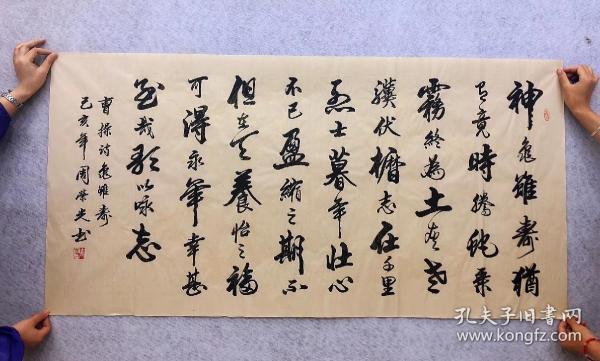 神龜雖壽猶
有竟時騰蛇乘
霧終為土灰老
驥伏櫪志在千里
烈士暮年壯心
不已盈縮之期不
但在天養怡之福
可得永年幸甚
至哉歌以咏志
曹操詩龜雖壽
己亥年周榮光书
孔夫子旧书网
www.kongfz.com